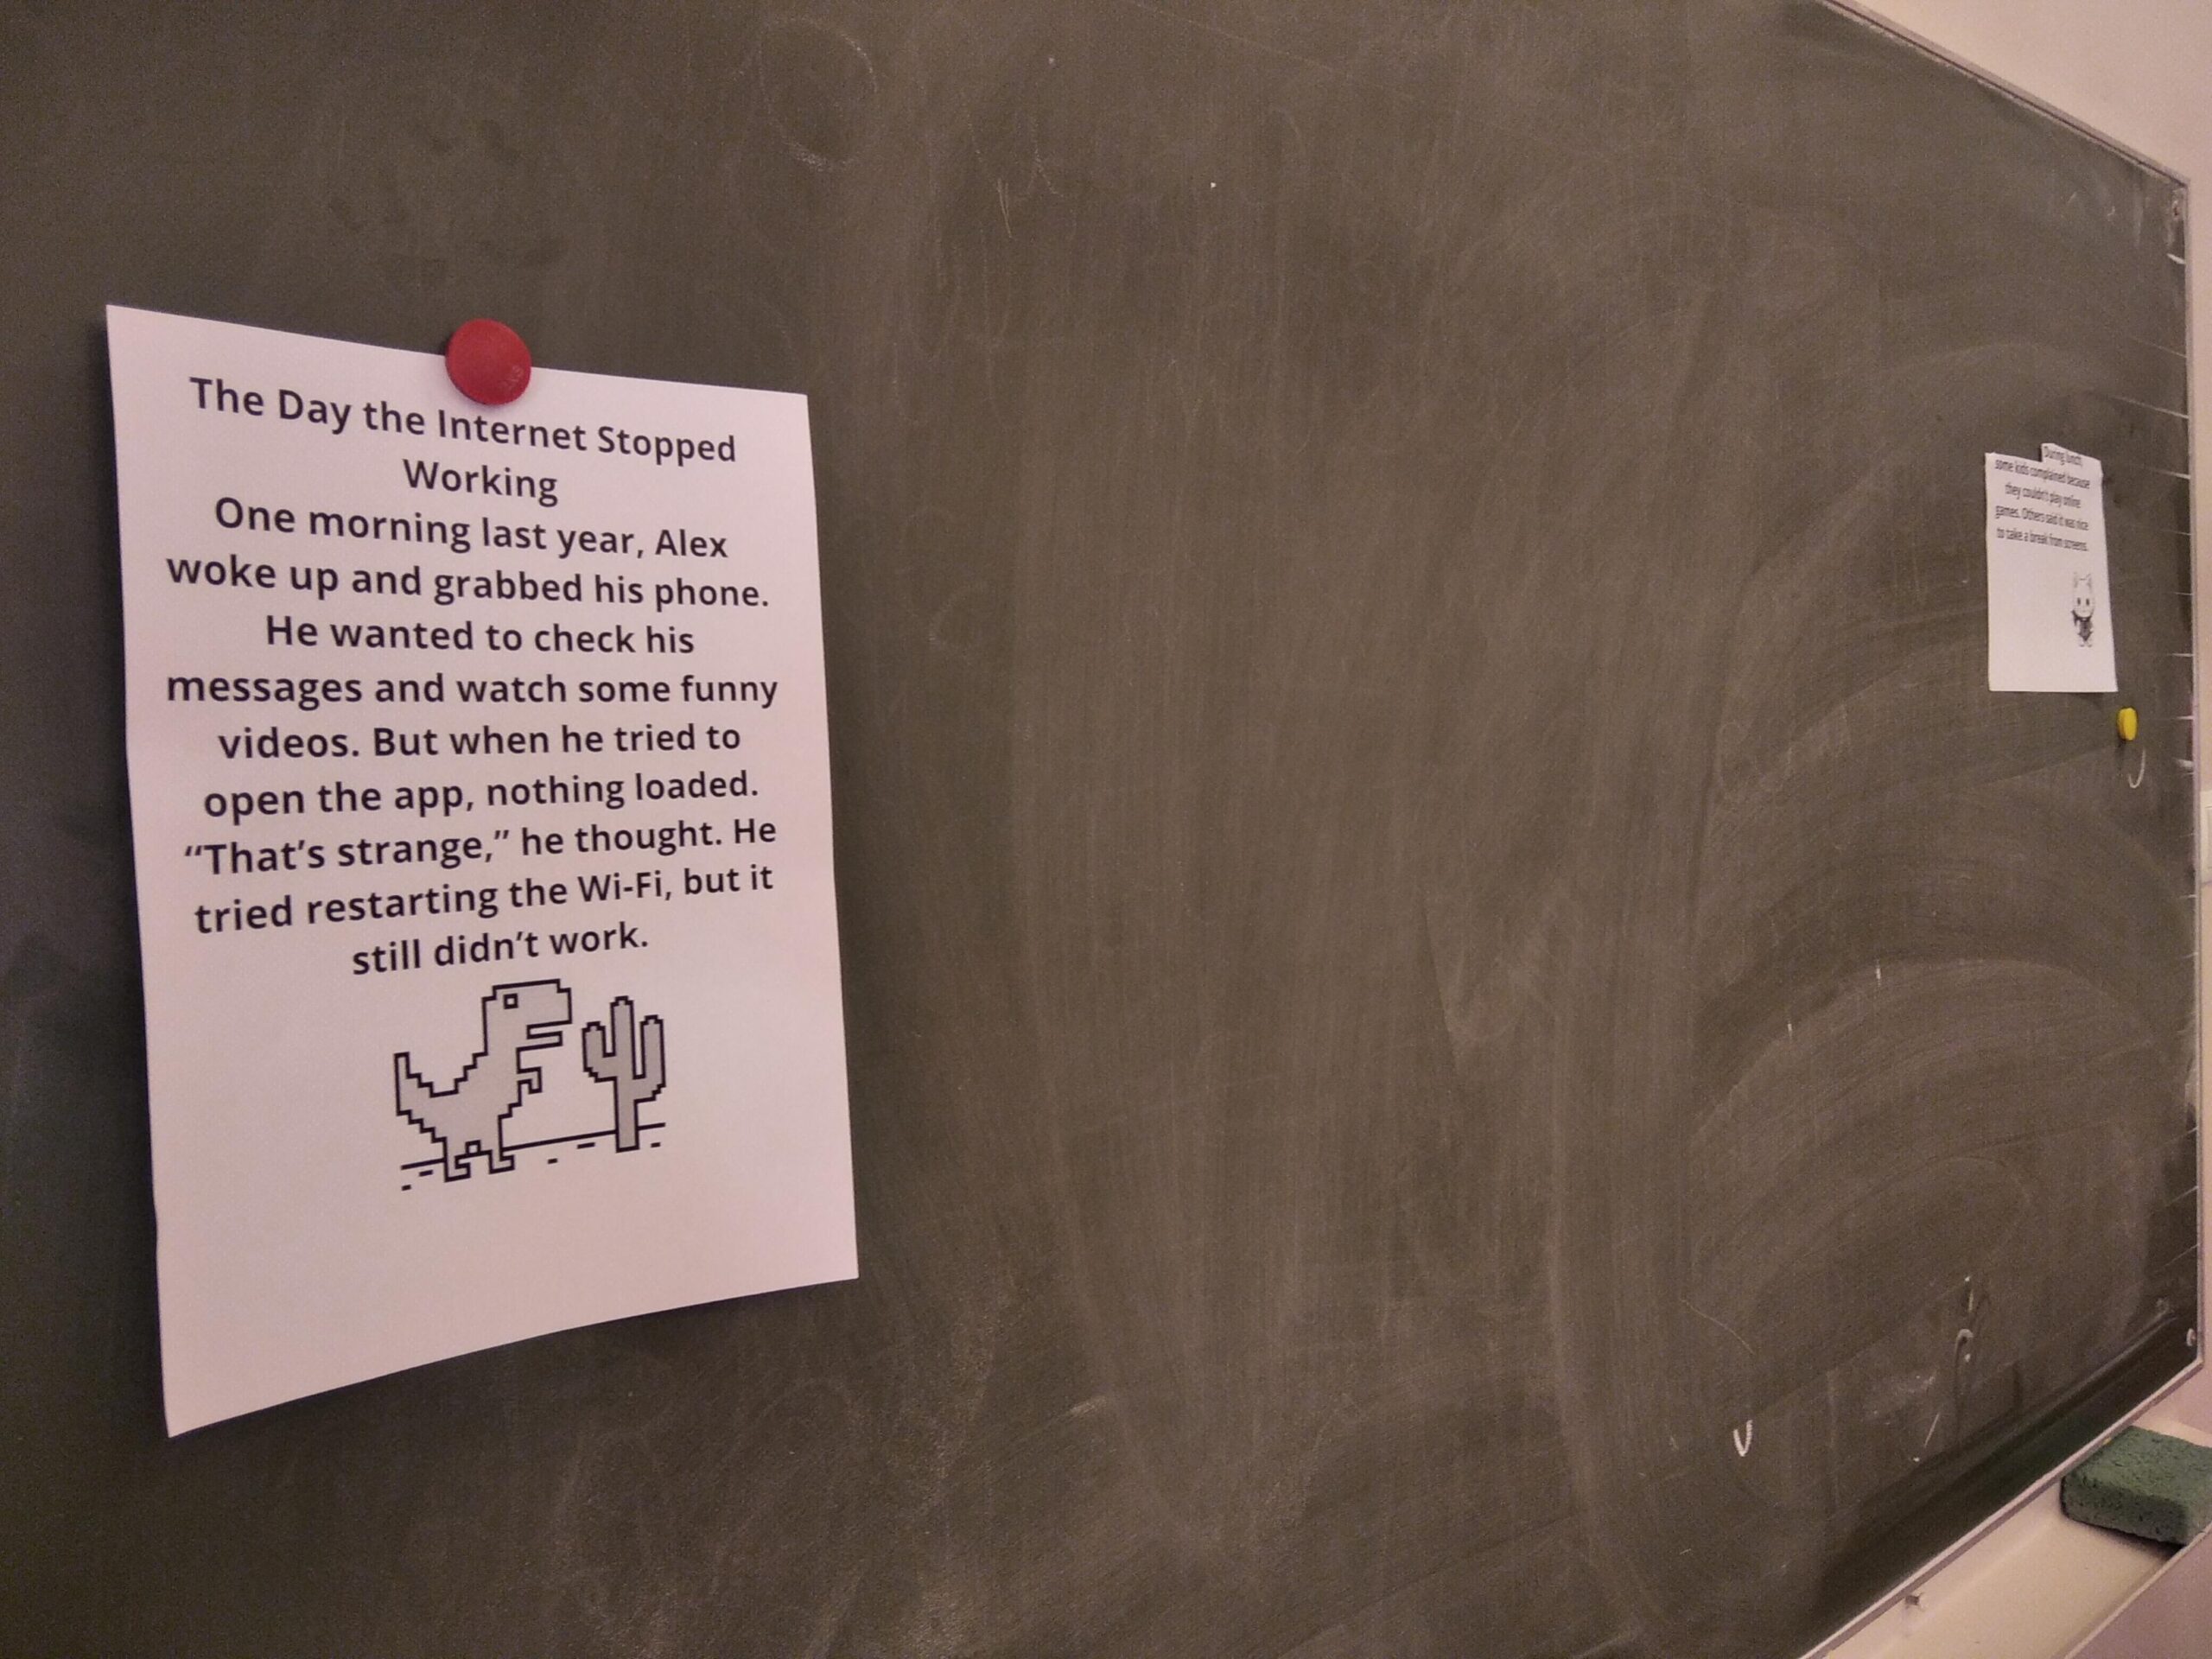 The Day the Internet Stopped
Working
One morning last year, Alex
woke up and grabbed his phone.
He wanted to check his
messages and watch some funny
videos. But when he tried to
open the app, nothing loaded.
“That’s strange,” he thought. He
tried restarting the Wi-Fi, but it
still didn’t work.
During lunch,
some kids complained because
they couldn’t play online
games. Others said it was nice
to take a break from screens.